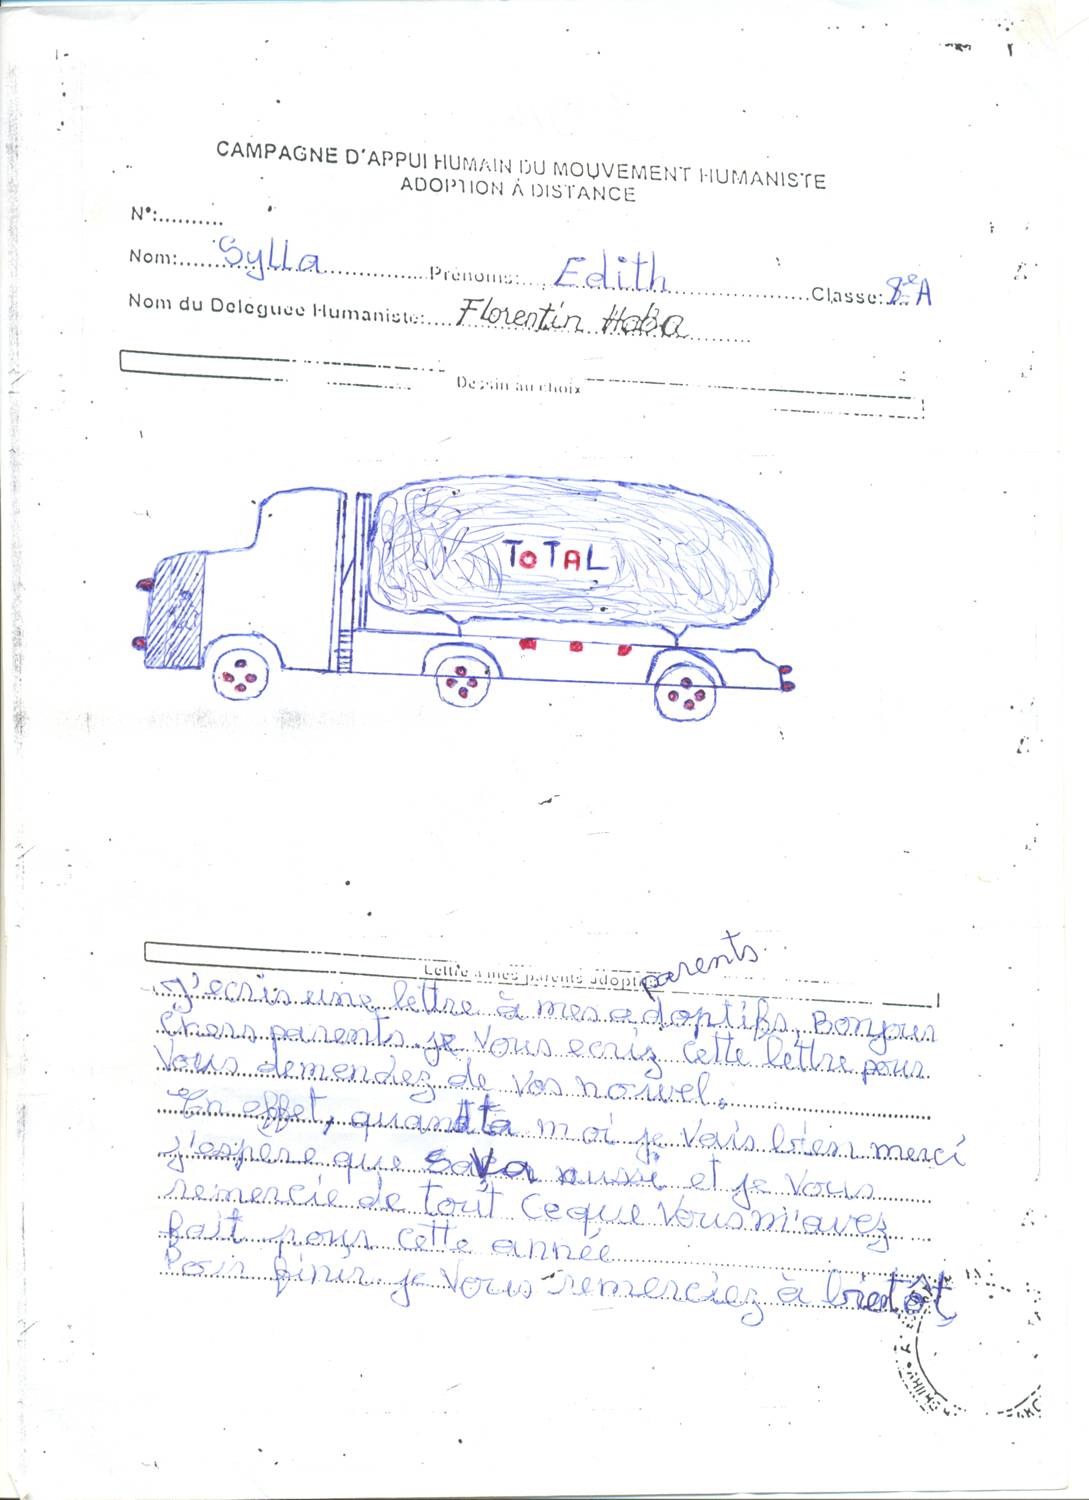 CAMPAGNE D'APPUI HUMAIN DU MOUVEMENT HUMANISTE
ADOPTION À DISTANCE
N°:..........
Nom:.....Sylla...............Prénoms:....Edith....................Classe:8e A
Nom du Deleguee Humaniste:....Florentin Haba.........
Dessin au choix
ToTAL
Lettre à mes parents adoptifs
parents
J'ecris une lettre à mes adoptifs, Bonjour
Chers parents. je Vous ecriz cette lettre pour
Vous demendez de vos nouvel.
En effet, quant à moi je Vais bien merci
j'espère que sa Va aussi et je Vous
remercie de tout ce que Vous m'avez
fait pour cette année
Poir finir je Vous remerciez à bientôt